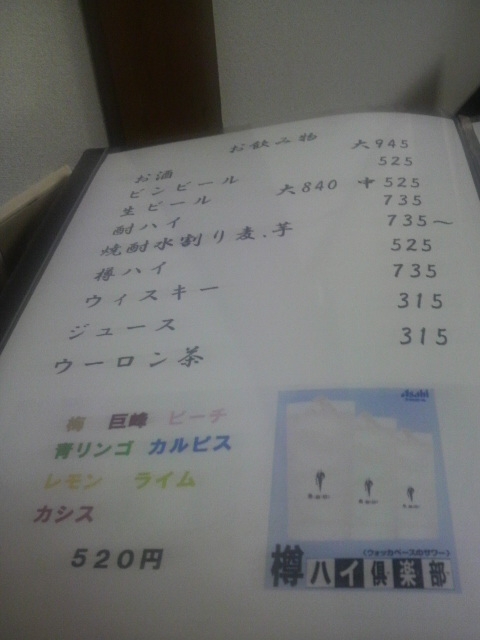 お飲み物
お酒 大945
ビンビール 525
生ビール 大840 中525
酎ハイ 735
焼酎水割り麦.芋 735～
樽ハイ 525
ウィスキー 735
ジュース 315
ウーロン茶 315
梅 巨峰 ピーチ
青リンゴ カルピス
レモン ライム
カシス
520円
Asahi
(ウォッカベースのサワー)
樽ハイ倶楽部